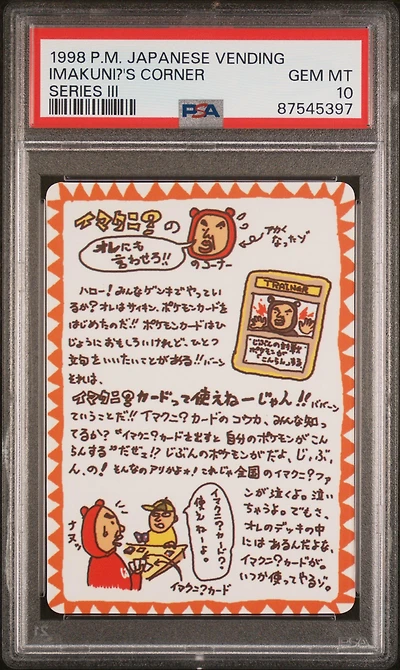 1998 P.M. JAPANESE VENDING
IMAKUNI?'S CORNER
GEM MT
SERIES III
10
PSA
87545397
イマクニ?の
オレにも
言わせろ!!
のコーナー
アカく
なったゾ
ハロー!みんなゲンキでやってい
るか?オレはサイキン、ポケモンカードを
はじめたのだ!!ポケモンカードはひ
じょうにおもしろいけれど、ひとつ
文句をいいたいことがある!!バーン
それは、
TRAINER
じぶんの
ポケモンが
こんらんする
イマクニ?カードって使えねーじゃん!!ババーン
ていうことだ!!イマクニ?カードのコウカ、みんな知っ
てるか?"イマクニ?カードを出すと自分のポケモンがこん
らんする"だぜっ!?じぶんのポケモンがだよ、じ、ぶ、
ん、の!そんなのアリかよォ!これじゃ全国のイマクニ?ファ
ンが泣くよ。泣い
ちゃうよ。でもさ、
オレのデッキの中
にはあるんだよな、
イマクニ?カードが。
いつか使ってやるゾ。
イマクニ?カード?
使えねーよ。
ナヌッ
イマクニ?カード